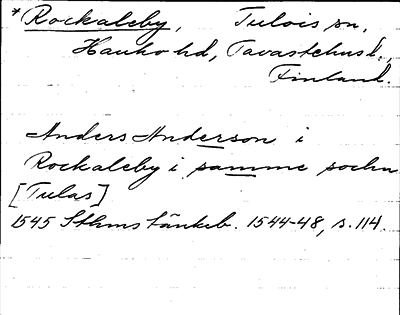 *Rockaleby, Tulois sn,
Hauko hd, Tavastehus l.,
Finland.
Anders Anderson i
Rockaleby i samme sochn
[Tulas]
1545 Sthms tänkeb. 1544-48, s. 114.